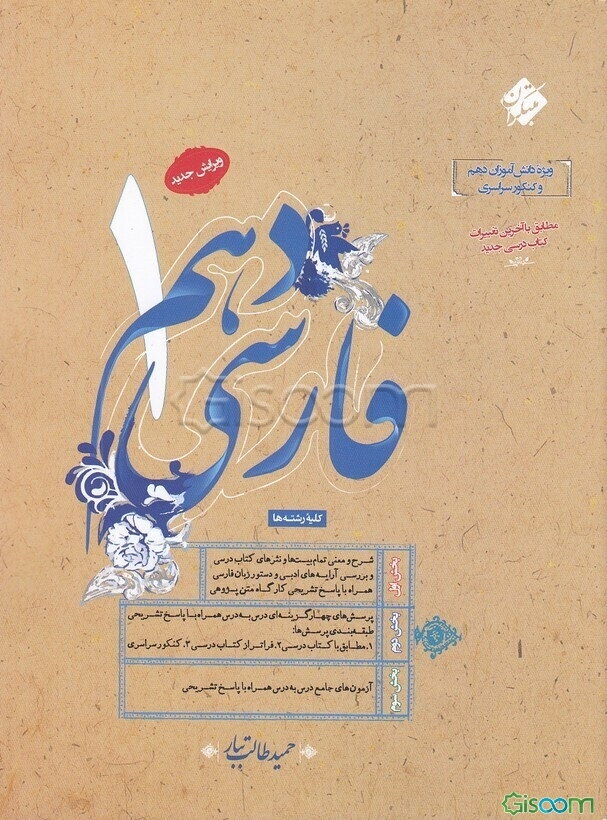 مبتکران
ویژه دانش‌آموزان دهم
و کنکور سراسری
مطابق با آخرین تغییرات
کتاب درسی جدید
ویرایش جدید
دهم
۱
فارسی
Giscom
کلیه رشته‌ها
بخش اول
شرح و معنی تمام بیت‌ها و نثرهای کتاب درسی
و بررسی آرایه‌های ادبی و دستور زبان فارسی
همراه با پاسخ تشریحی کارگاه متن پژوهی
بخش دوم
پرسش‌های چهارگزینه‌ای درس به درس همراه با پاسخ تشریحی
طبقه‌بندی پرسش‌ها:
۱. مطابق با کتاب درسی ۲. فراتر از کتاب درسی ۳. کنکور سراسری
بخش سوم
آزمون‌های جامع درس به درس همراه با پاسخ تشریحی
حمید طالب تبار
Gisoom